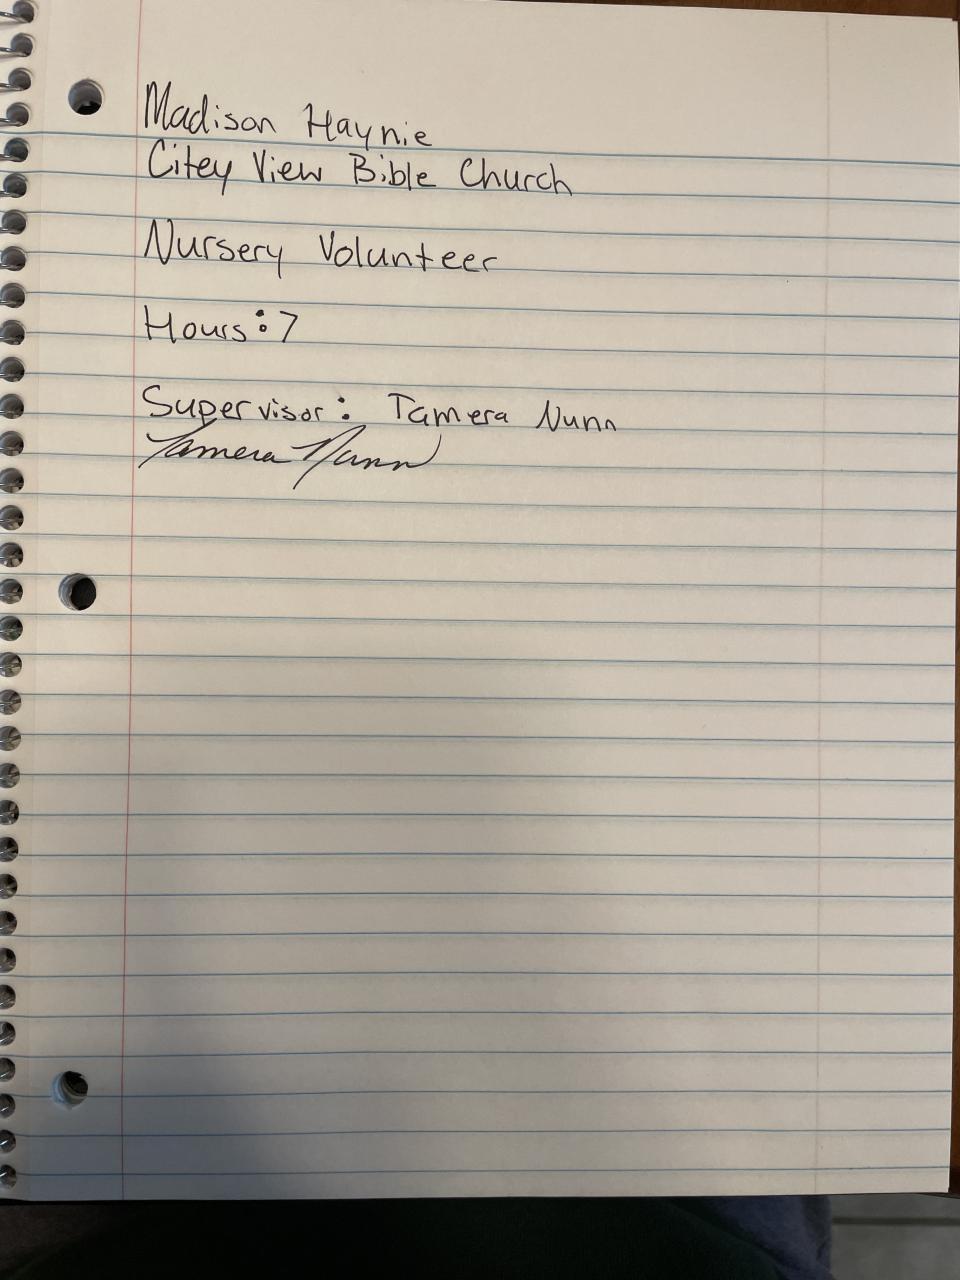 Madison Haynie
Citey View Bible Church
Nursery Volunteer
Hours: 7
Supervisor: Tamera Nunn
Tamera Nunn